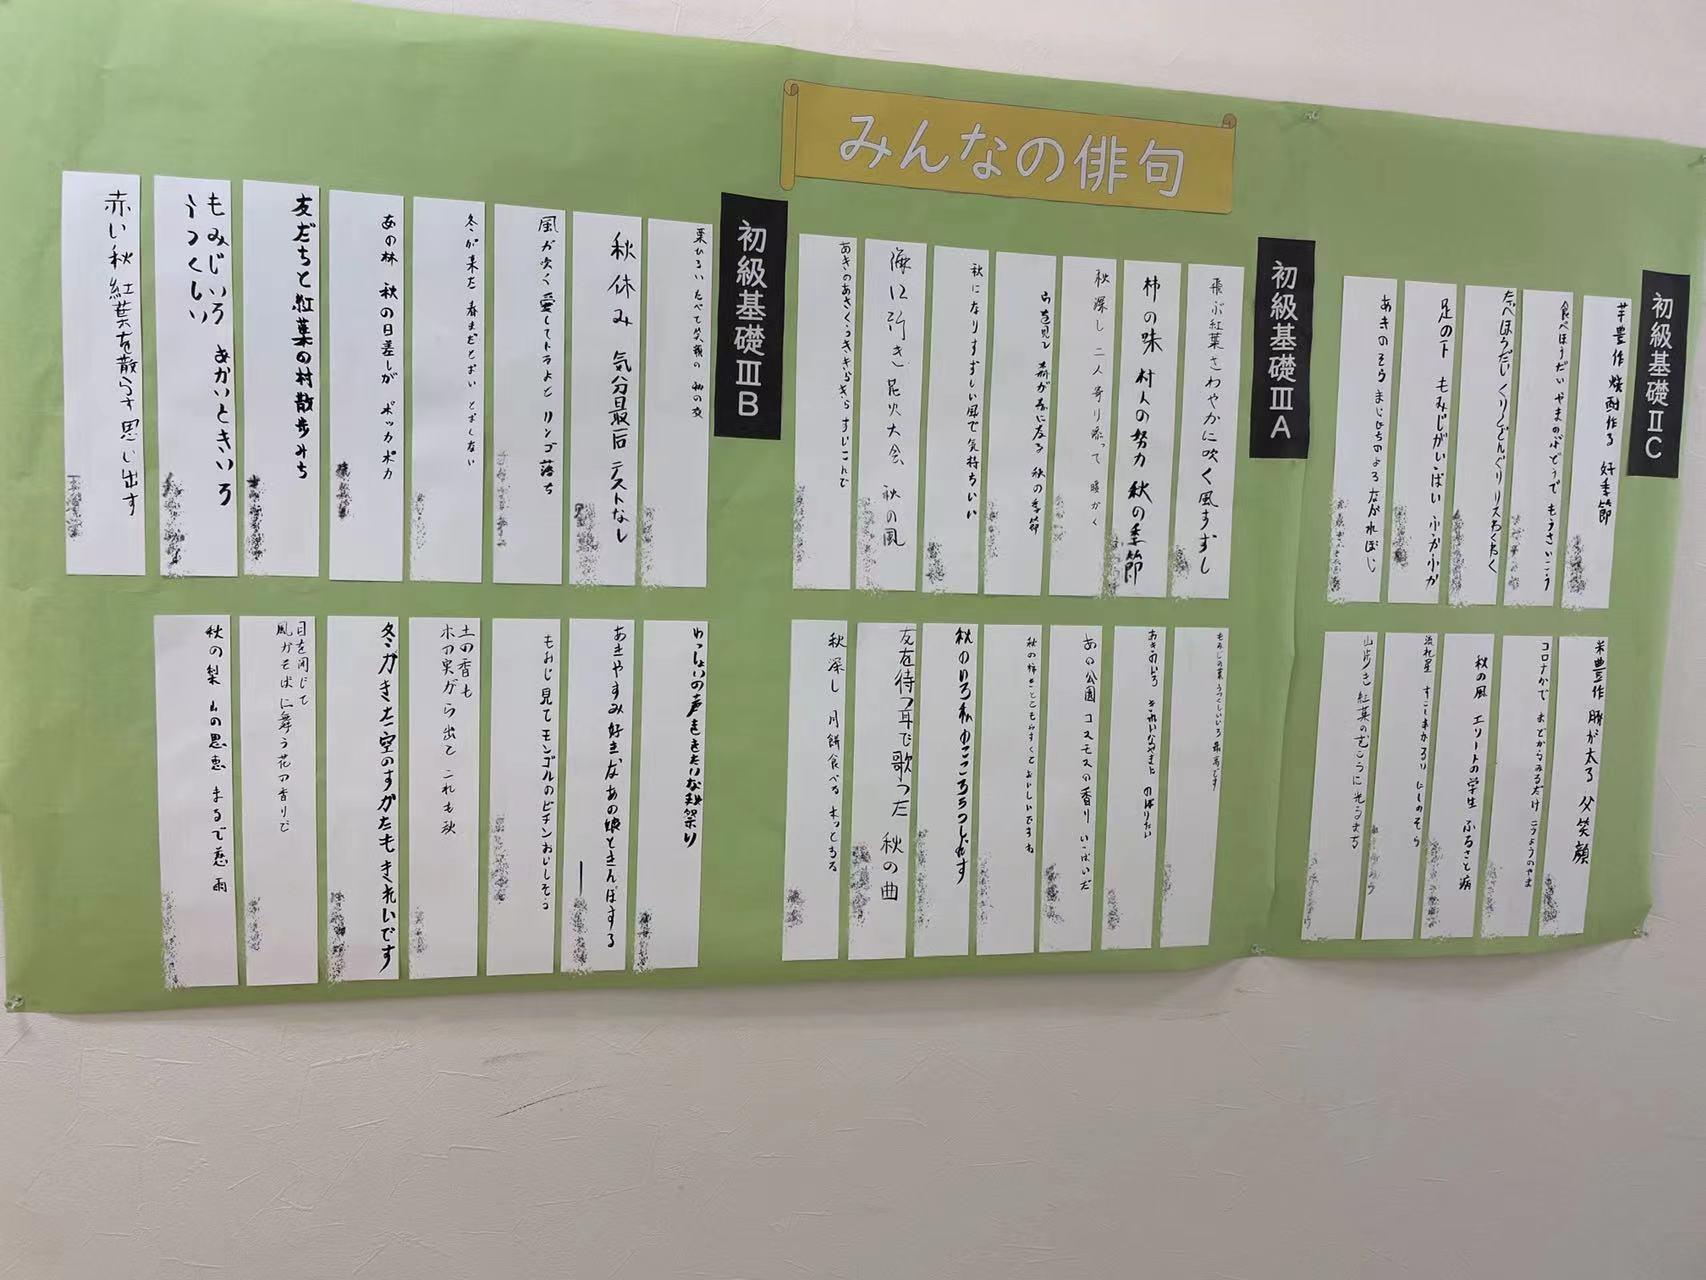 みんなの俳句
初級基礎ⅡC
芋豊作 焼酎作る 好季節
食べほうだい やまのぶどうで もうさいこう
たべほうだい くりとどんぐり リスわくわく
足の下 もみじがいっぱい ふかふか
あきのそら まじょたちのよる ながれぼし
米豊作 豚が太る 父笑顔
コロナかで まどからみるだけ こうようのやま
秋の風 エリートの学生 ふるさと病
流れ星 すこしあかるい にしのそら
山歩き 紅葉のむこうに 光るまち
初級基礎ⅢA
飛ぶ紅葉 さわやかに吹く 風すずし
柿の味 村人の努力 秋の季節
秋深し 二人寄り添って 暖かく
秋の季節
秋になり すずしい風で 気持ちいい
海に行き 花火大会 秋の風
もみじの葉 うつくしいいろ 最高です
あきのいろ きれいなやまに のぼりたい
あの公園 コスモスの香り いっぱいだ
秋のいろ 私のこころ うつします
友を待つ 耳で歌った 秋の曲
秋深し 月餅食べる
初級基礎ⅢB
栗ひろい たべて笑顔の 秋の夜
秋休み 気分最高 テストなし
風が吹く 愛してトラよと リンゴ落ち
冬が来た 春まだとおい とおくない
あの林 秋の日差しが ポッカポカ
友だちと 紅葉の村 散歩みち
もみじいろ あかいときいろ
うつくしい
赤い秋 紅葉を散らす 思い出す
わっしょいの 声をききたいな 秋祭り
あきやすみ 好きなあの娘と さんぽする
もみじ見て モンゴルのビチン おいしそう
土の香も
木の実から出て これも秋
冬がきた 空のすがたも きれいです
目を閉じて
風がそばに舞う 花の香りで
秋の梨 山の恩恵 まるで慈雨